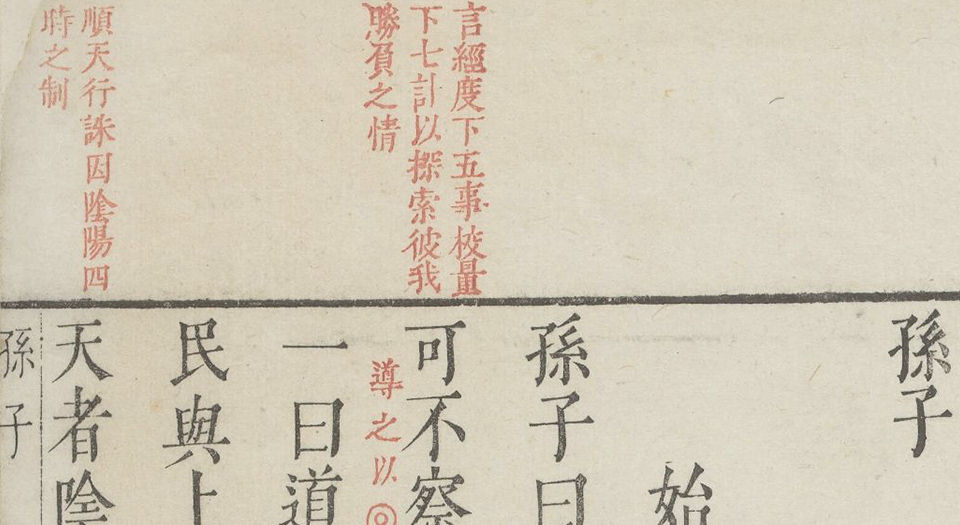 言經度下五事校量
下七計以探索彼我
勝負之情
順天行誅因陰陽四
時之制
孫子
始
孫子曰
可不察
導之以
一曰道
民與上
天者陰
孫子